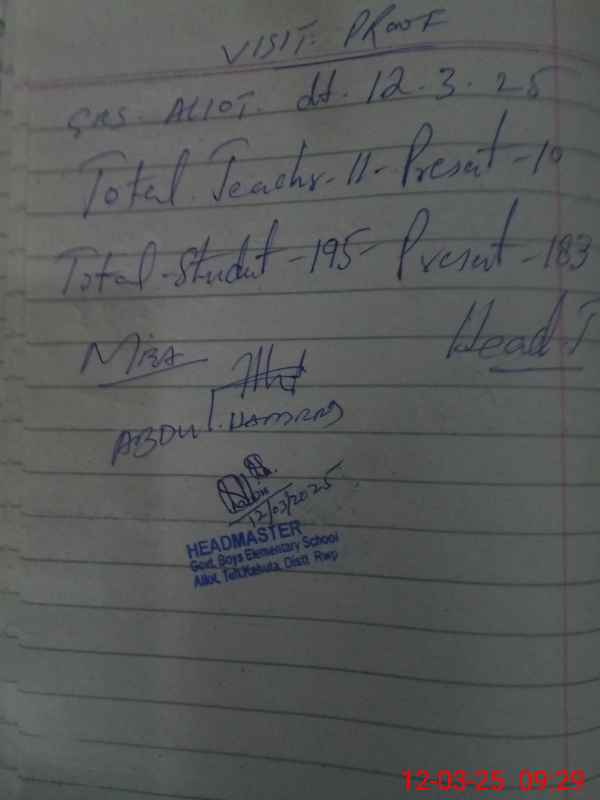 VISIT PROOF
GBS. ALLOT. dt. 12.3.25
Total Teachr-11-Present-10
Total-Student-195-Present-183
MEA
Head T
ABDUL
12/03/2025
HEADMASTER
Govt. Boys Elementary School
Allot, Teh:Kahuta, Distt Rwp
12-03-25 09:29